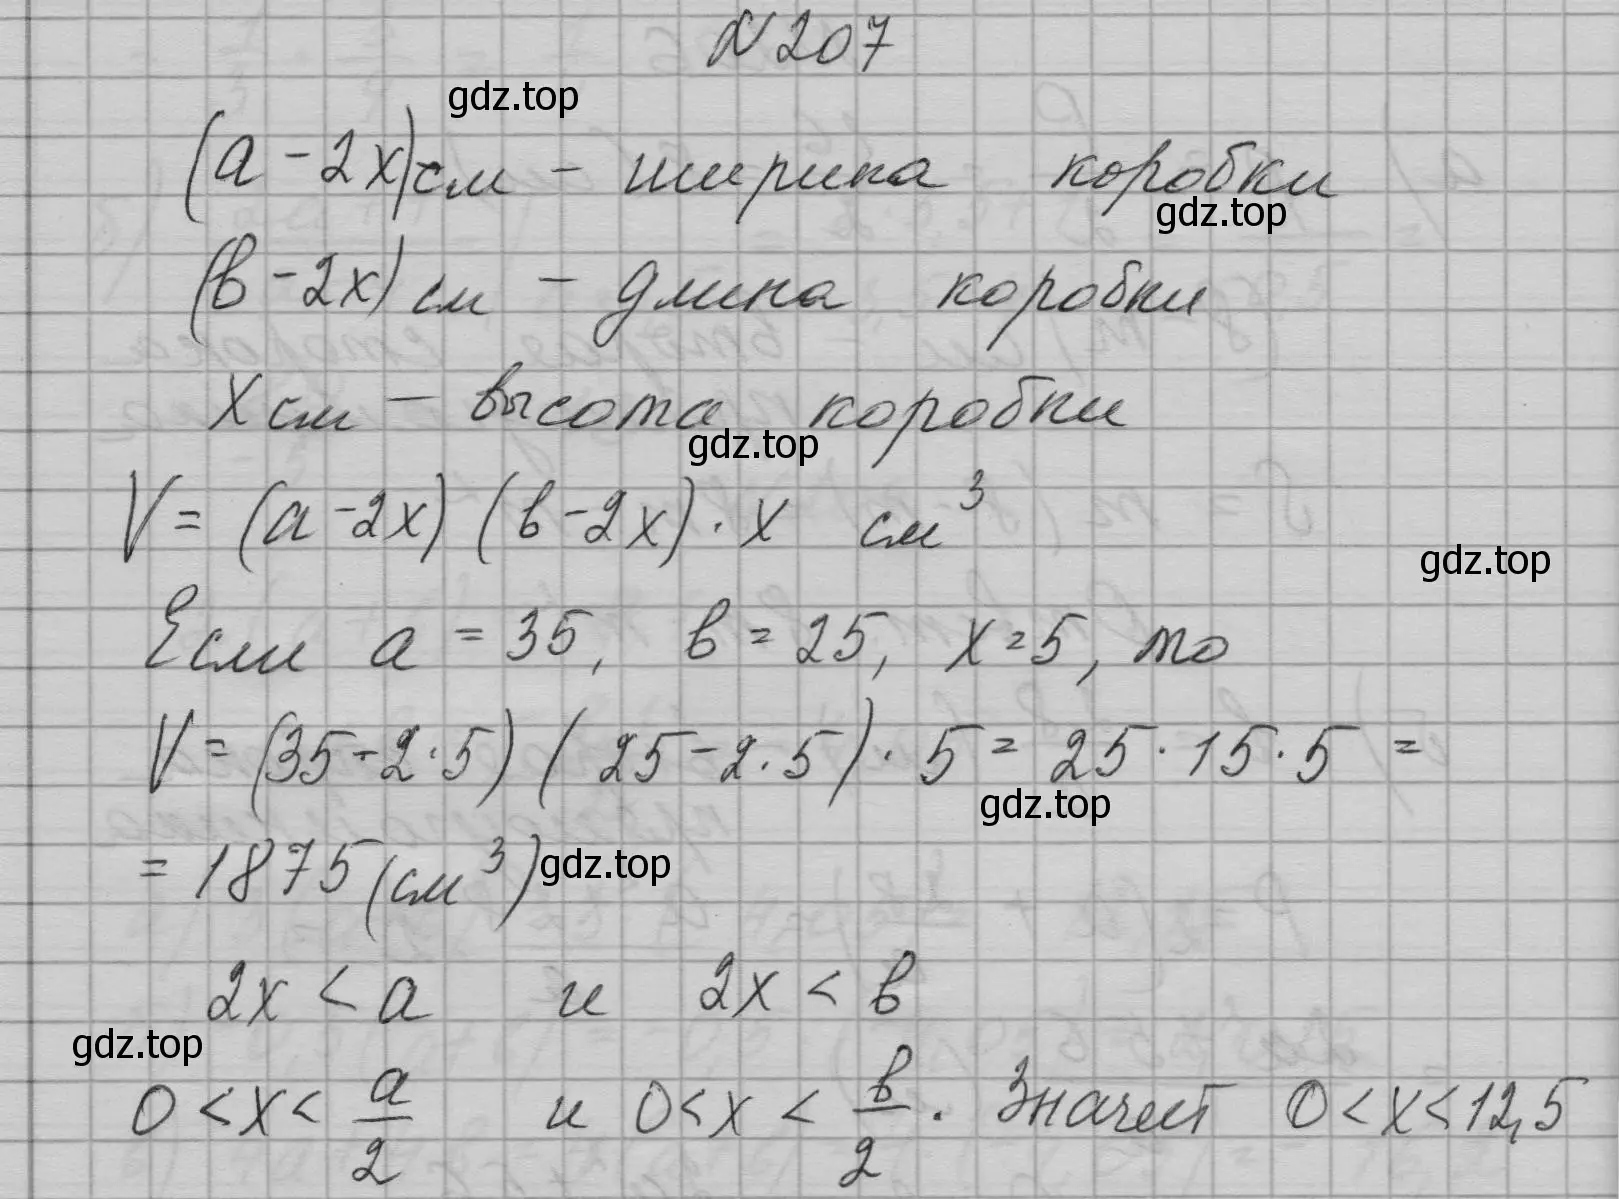 N 207
gdz.top
(а - 2x) см - ширина коробки
gdz.top
(в - 2x) см - длина коробки
x см - высота коробки
gdz.top
V = (а - 2x) (в - 2x) · x см³
gdz.top
Если а = 35, в = 25, x = 5, то
V = (35 - 2 · 5) (25 - 2 · 5) · 5 = 25 · 15 · 5 =
gdz.top
= 1875 (см³)
gdz.top
2x < а и 2x < в
gdz.top
0 < x < а/2 и 0 < x < в/2. Значит 0 < x < 12,5